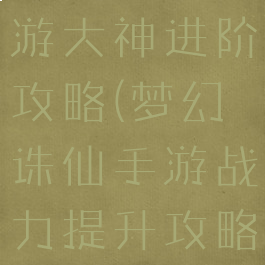 游大神进阶
攻略(梦幻
诛仙手游战
力提升攻略